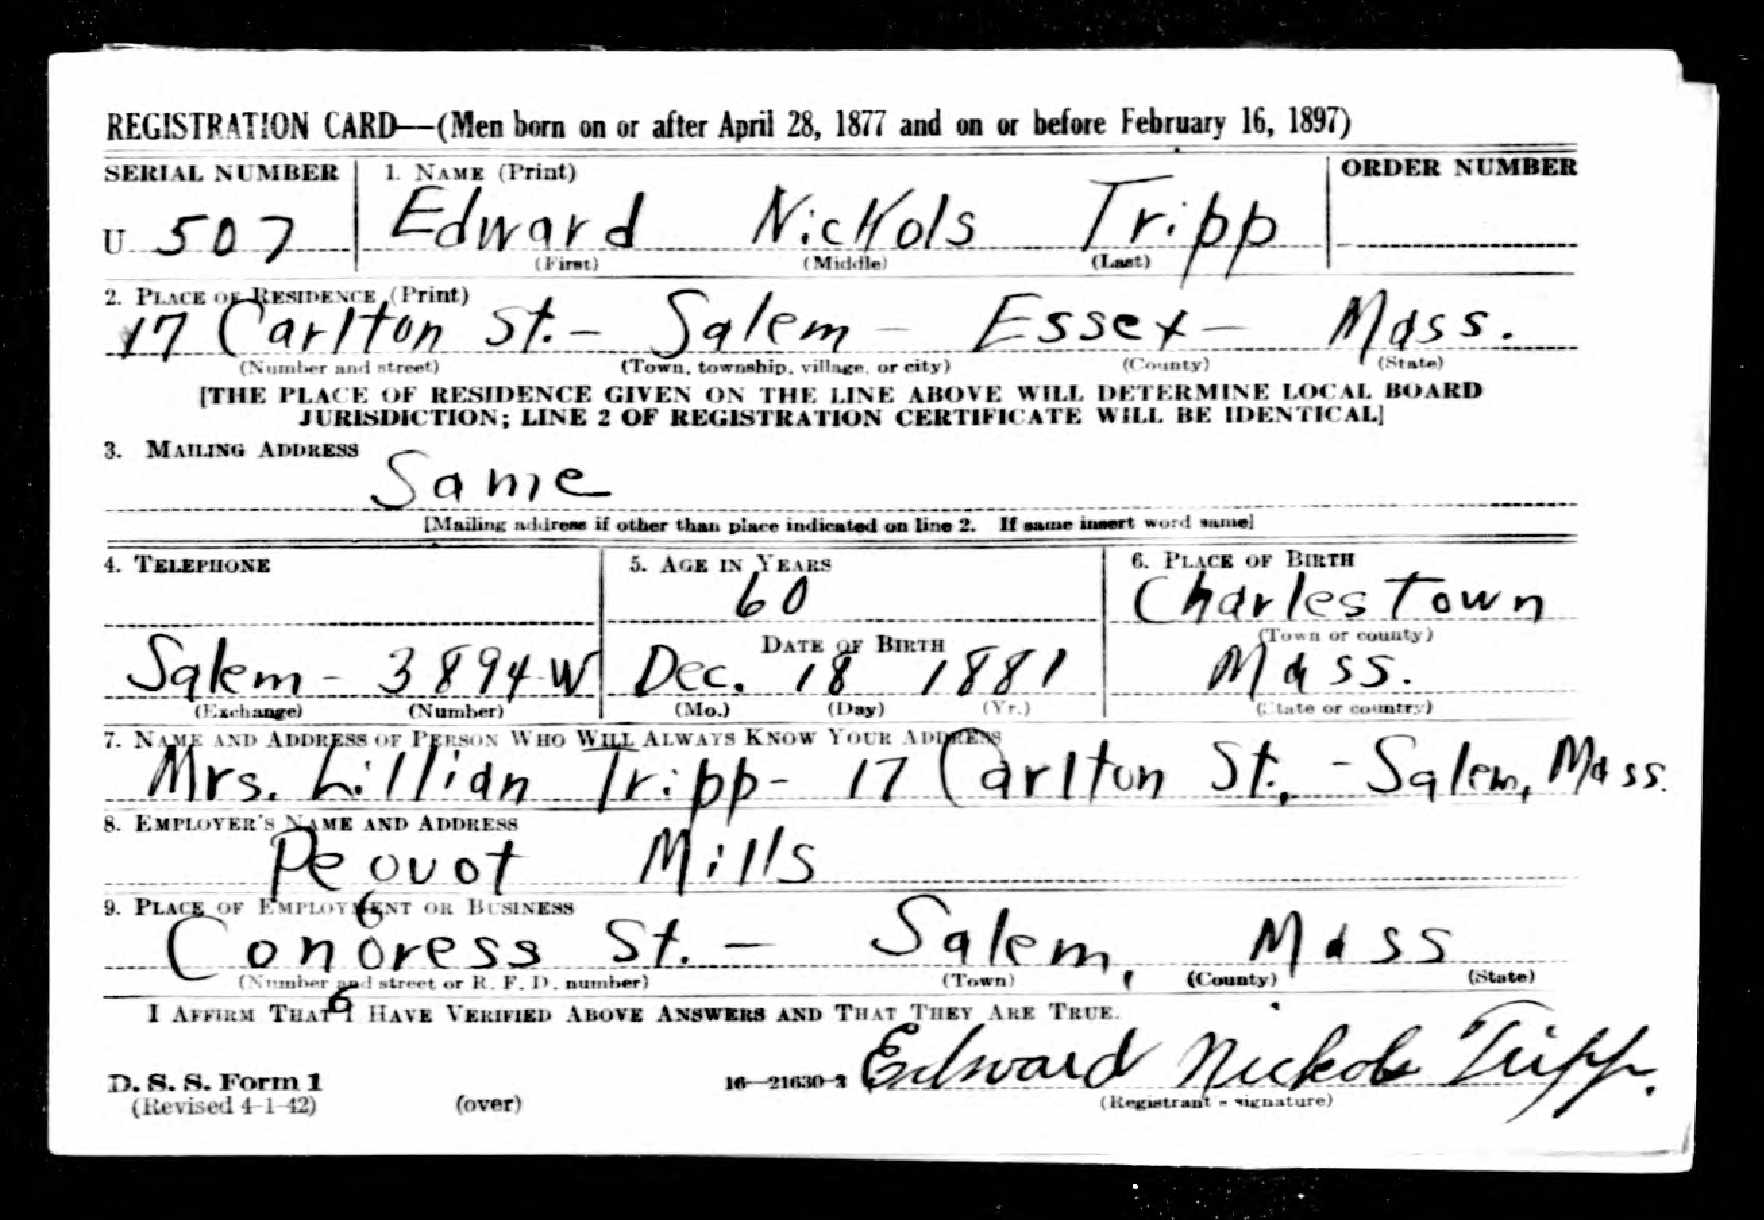 REGISTRATION CARD—(Men born on or after April 28, 1877 and on or before February 16, 1897)
SERIAL NUMBER 1. NAME (Print) ORDER NUMBER
U 507 Edward Nickols Tripp
(First) (Middle) (Last)
2. PLACE OF RESIDENCE (Print)
17 Carlton St. – Salem – Essex – Mass.
(Number and street) (Town, township, village, or city) (County) (State)
[THE PLACE OF RESIDENCE GIVEN ON THE LINE ABOVE WILL DETERMINE LOCAL BOARD
JURISDICTION; LINE 2 OF REGISTRATION CERTIFICATE WILL BE IDENTICAL]
3. MAILING ADDRESS
Same
[Mailing address if other than place indicated on line 2. If same insert word same]
4. TELEPHONE 5. AGE IN YEARS 6. PLACE OF BIRTH
60 Charlestown
DATE OF BIRTH (Town or county)
Salem – 3894-W Dec. 18 1881 Mass.
(Exchange) (Number) (Mo.) (Day) (Yr.) (State or country)
7. NAME AND ADDRESS OF PERSON WHO WILL ALWAYS KNOW YOUR ADDRESS
Mrs. Lillian Tripp – 17 Carlton St., – Salem, Mass.
8. EMPLOYER'S NAME AND ADDRESS
Pequot Mills
9. PLACE OF EMPLOYMENT OR BUSINESS
Congress St. – Salem, Mass
(Number and street or R. F. D. number) (Town) (County) (State)
I AFFIRM THAT I HAVE VERIFIED ABOVE ANSWERS AND THAT THEY ARE TRUE.
D. S. S. Form 1 16—21630-2 Edward Nickols Tripp.
(Revised 4-1-42) (over) (Registrant's signature)